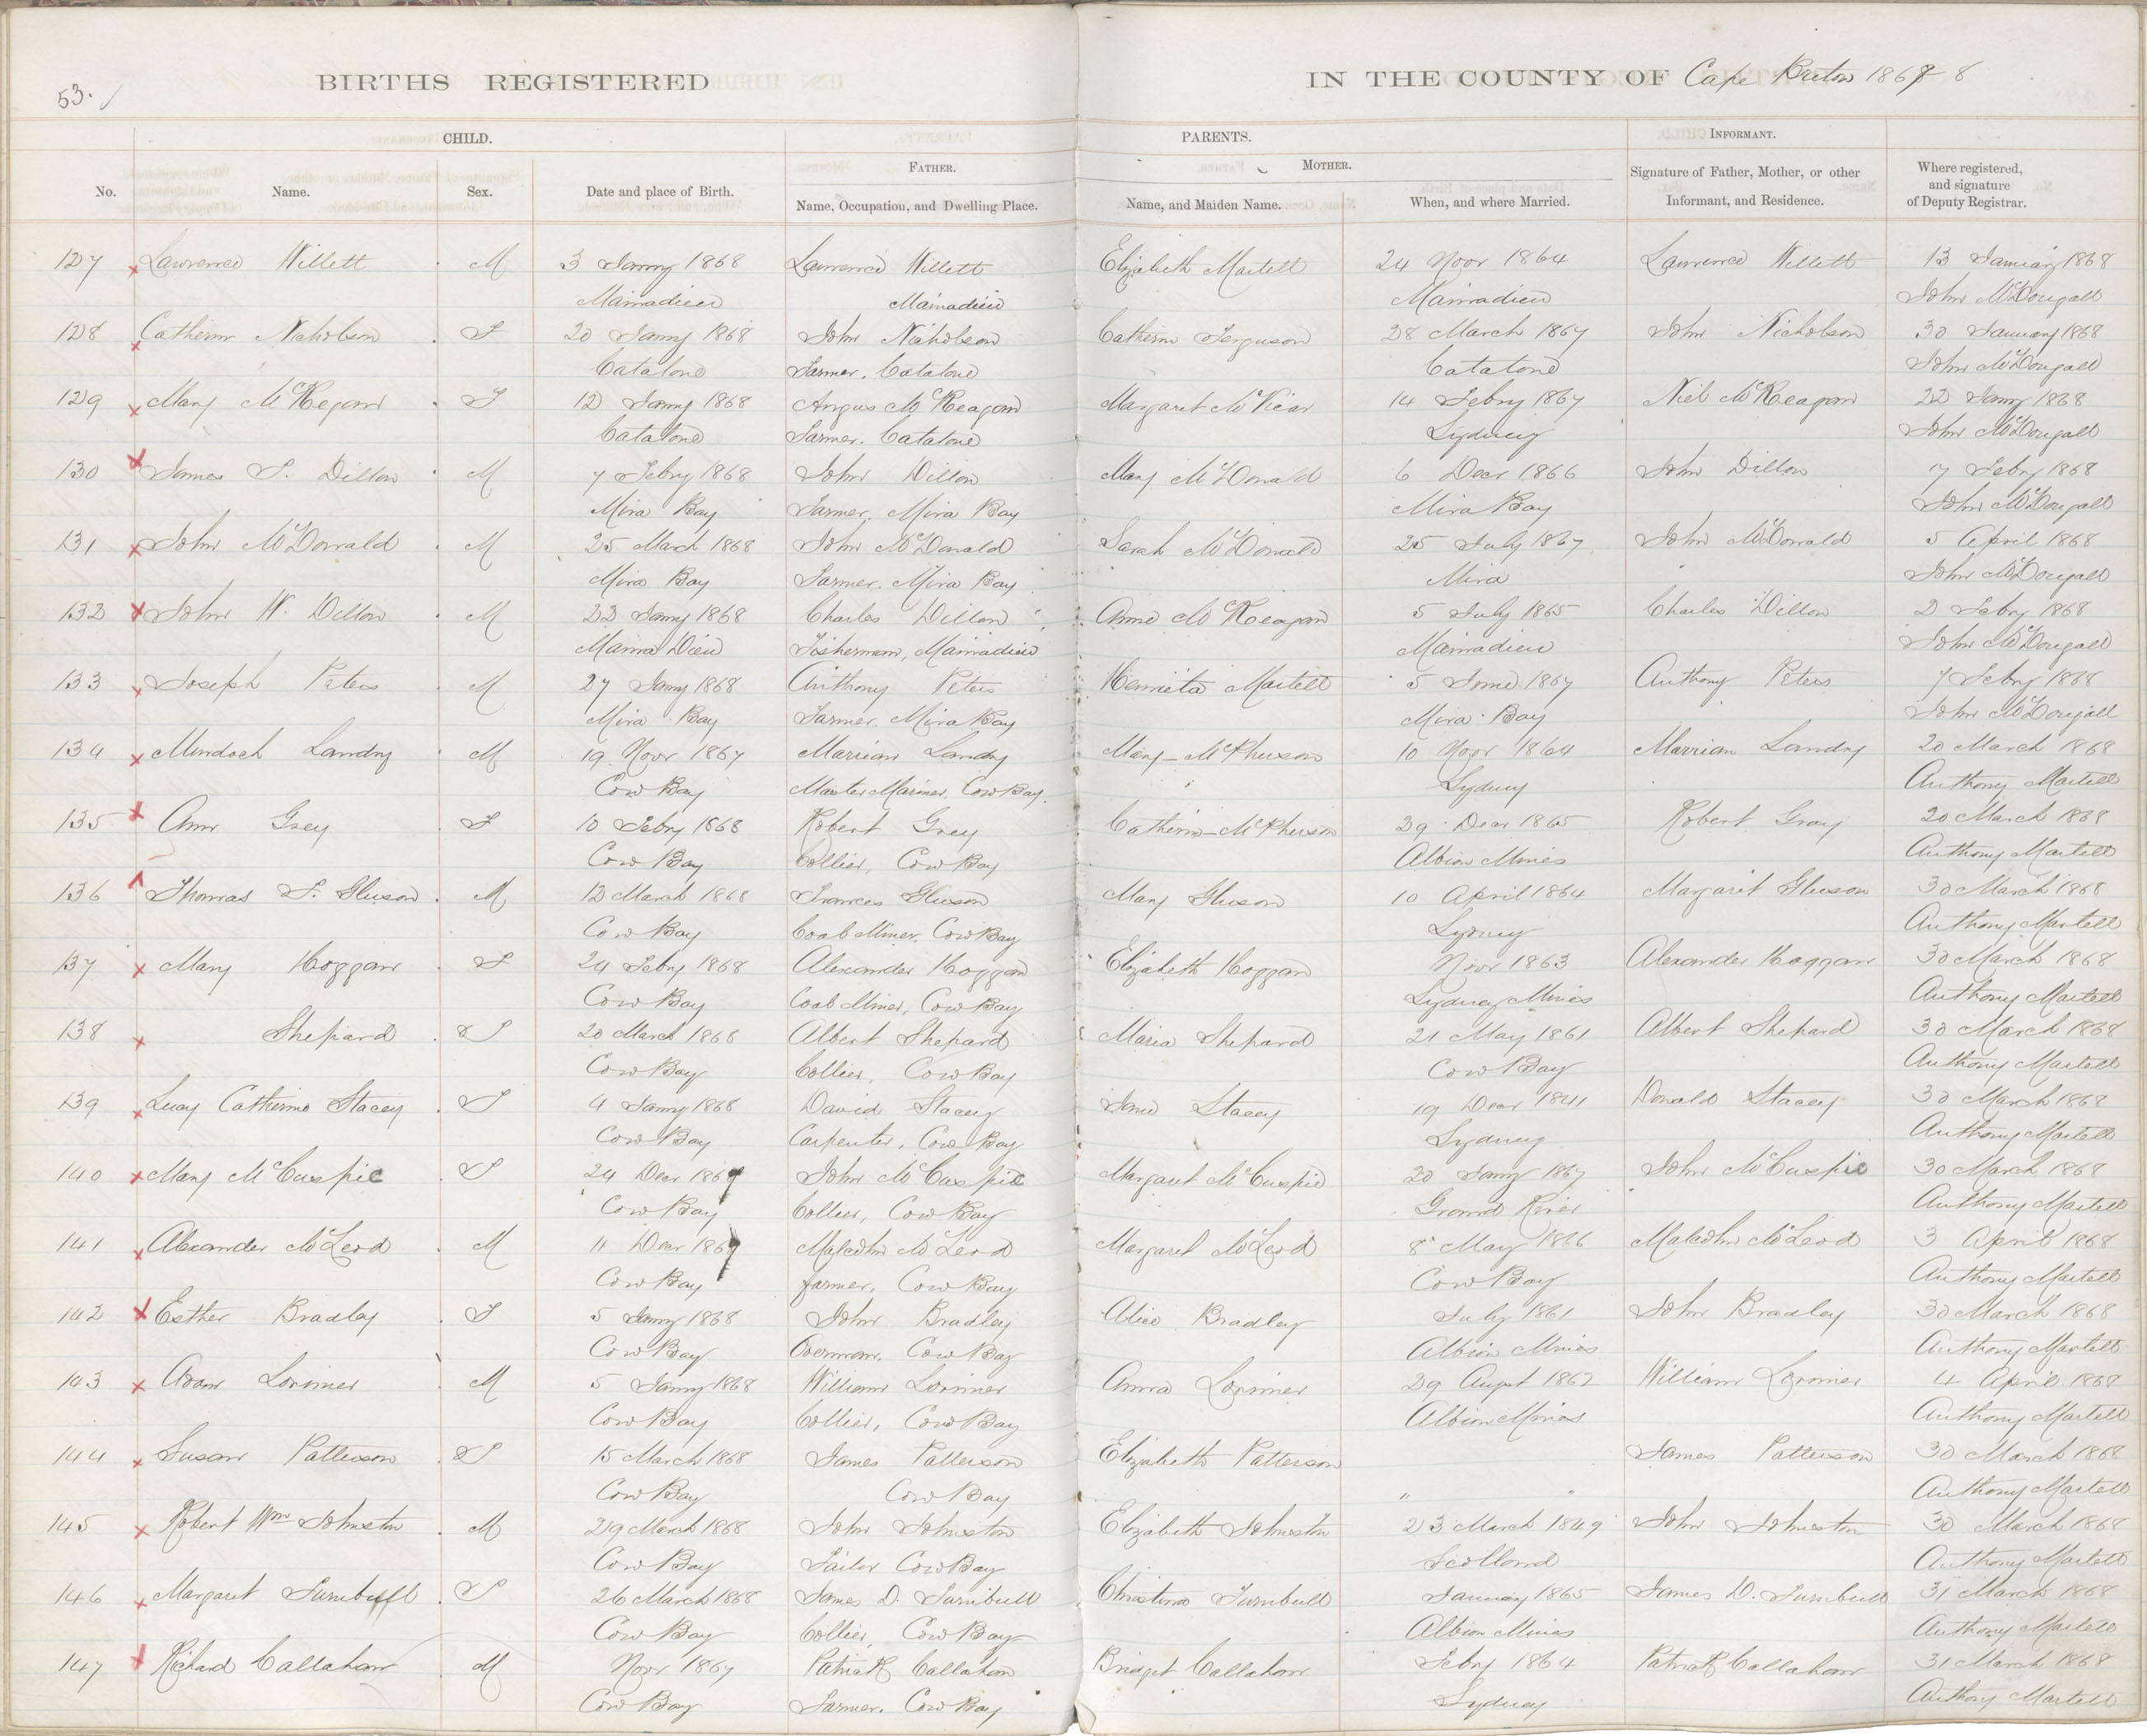 53.
BIRTHS REGISTERED
IN THE COUNTY OF Cape Breton 1867 8
CHILD.
PARENTS.
INFORMANT.
No.
Name.
Sex.
Date and place of Birth.
FATHER.
Name, Occupation, and Dwelling Place.
MOTHER.
Name, and Maiden Name.
When, and where Married.
Signature of Father, Mother, or other
Informant, and Residence.
Where registered,
and signature
of Deputy Registrar.
127 Lawrence Willett M 3 Janny 1868 Lawrence Willett Elizabeth Martell 24 Novr 1864 Lawrence Willett 13 January 1868
Mainadieu Mainadieu Mainadieu John McDougall
128 Catherine Nicholson F 20 Janny 1868 John Nicholson Catherine Ferguson 28 March 1867 John Nicholson 30 January 1868
Catalone Farmer. Catalone Catalone John McDougall
129 Mary McKegan F 12 Janny 1868 Angus McKeagan Margaret McVicar 14 Febry 1867 Niel McKeagan 22 Janny 1868
Catalone Farmer. Catalone Sydney John McDougall
130 James F. Dillon M 7 Febry 1868 John Dillon Mary McDonald 6 Decr 1866 John Dillon 7 Febry 1868
Mira Bay Farmer. Mira Bay Mira Bay John McDougall
131 John McDonald M 25 March 1868 John McDonald Sarah McDonald 25 July 1867 John McDonald 5 April 1868
Mira Bay Farmer. Mira Bay Mira John McDougall
132 John W. Dillon M 22 Janny 1868 Charles Dillon Anne McKeagan 5 July 1865 Charles Dillon 2 Febry 1868
Maina Dieu Fisherman, Mainadieu Mainadieu John McDougall
133 Joseph Peters M 27 Janny 1868 Anthony Peters Henrieta Martell 5 June 1867 Anthony Peters 7 Febry 1868
Mira Bay Farmer. Mira Bay Mira Bay John McDougall
134 Murdoch Landry M 19 Novr 1867 Marrian Landry Mary McPherson 10 Novr 1864 Marrian Landry 20 March 1868
Cow Bay Master Mariner, Cow Bay. Sydney Anthony Martell
135 Ann Grey F 10 Febry 1868 Robert Grey Catherine McPherson 29 Decr 1865 Robert Gray 20 March 1868
Cow Bay Collier, Cow Bay Albion Mines Anthony Martell
136 Thomas F. Gleeson M 12 March 1868 Frances Gleeson Mary Gleeson 10 April 1864 Margaret Gleeson 30 March 1868
Cow Bay Coal Miner, Cow Bay Sydney Anthony Martell
137 Mary Hoggan F 24 Febry 1868 Alexander Hoggan Elizabeth Hoggan Novr 1863 Alexander Hoggan 30 March 1868
Cow Bay Coal Miner, Cow Bay Sydney Mines Anthony Martell
138 Shepard F 20 March 1868 Albert Shepard Maria Shepard 21 May 1861 Albert Shepard 30 March 1868
Cow Bay Collier, Cow Bay Cow Bay Anthony Martell
139 Lucy Catherine Stacey F 4 Janny 1868 David Stacey Jane Stacey 19 Decr 1841 Donald Stacey 30 March 1868
Cow Bay Carpenter, Cow Bay Sydney Anthony Martell
140 Mary McCuspic F 24 Decr 1867 John McCuspic Margaret McCuspic 20 Janny 1867 John McCuspic 30 March 1868
Cow Bay Collier, Cow Bay Grand River Anthony Martell
141 Alexander McLeod M 11 Decr 1867 Malcolm McLeod Margaret McLeod 8 May 1866 Malcolm McLeod 3 April 1868
Cow Bay farmer, Cow Bay Cow Bay Anthony Martell
142 Esther Bradley F 5 Janny 1868 John Bradley Alice Bradley July 1861 John Bradley 30 March 1868
Cow Bay Overman, Cow Bay Albion Mines Anthony Martell
143 Adam Lorimer M 5 Janny 1868 William Lorimer Anna Lorimer 29 August 1862 William Lorimer 4 April 1868
Cow Bay Collier, Cow Bay Albion Mines Anthony Martell
144 Susan Patterson F 15 March 1868 James Patterson Elizabeth Patterson James Patterson 30 March 1868
Cow Bay Cow Bay " " Anthony Martell
145 Robert Wm Johnston M 29 March 1868 John Johnston Elizabeth Johnston 23 March 1849 John Johnston 30 March 1868
Cow Bay Tailor Cow Bay Scotland Anthony Martell
146 Margaret Turnbull F 26 March 1868 James D. Turnbull Christina Turnbull January 1865 James D. Turnbull 31 March 1868
Cow Bay Collier, Cow Bay Albion Mines Anthony Martell
147 Richard Callahan M Novr 1867 Patrick Callahan Bridget Callahan Febry 1864 Patrick Callahan 31 March 1868
Cow Bay Farmer, Cow Bay Sydney Anthony Martell